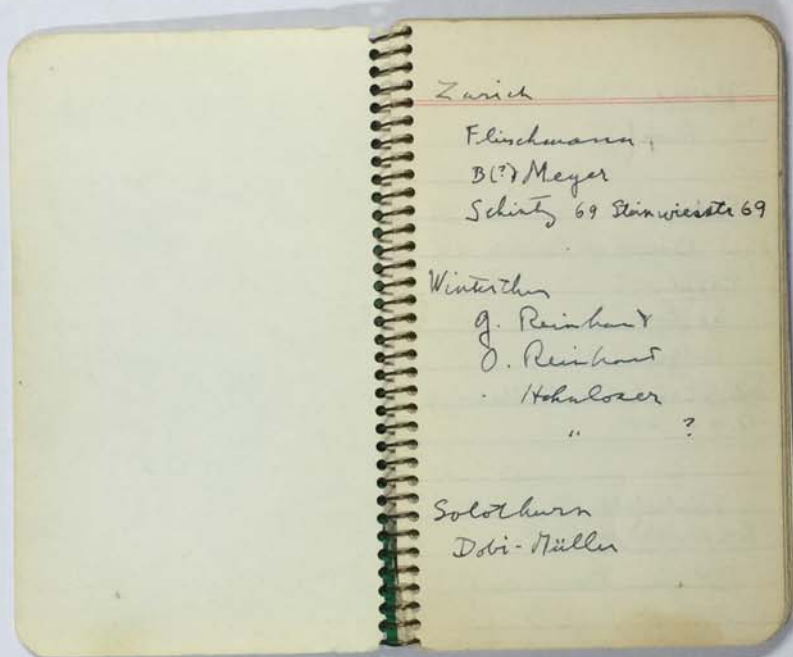 Zurich
Fleischmann
B(?) Meyer
Schintz 69 Steinwiesstr 69
Winterthur
G. Reinhart
O. Reinhart
Hahnloser
" ?
Solothurn
Dübi-Müller